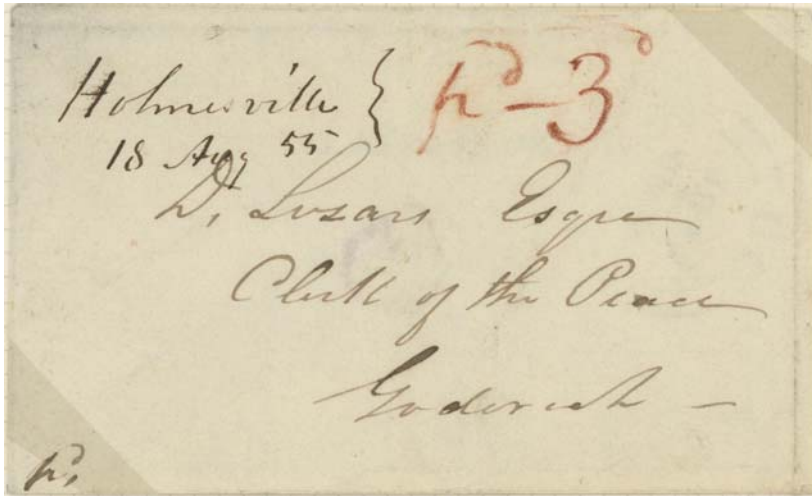 Holmesville } Pd - 3d
18 Aug 55
D. Lizars Esqre
Clerk of the Peace
Goderich -
Pd.